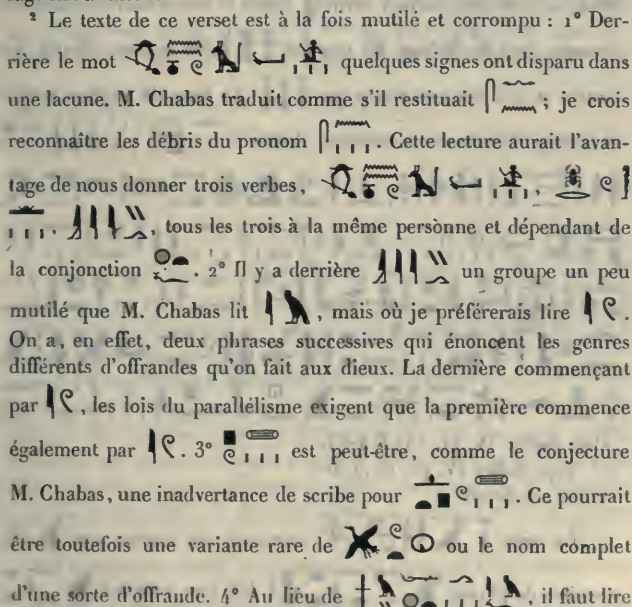 ² Le texte de ce verset est à la fois mutilé et corrompu : 1° Der-
rière le mot quelques signes ont disparu dans
une lacune. M. Chabas traduit comme s'il restituait ; je crois
reconnaître les débris du pronom . Cette lecture aurait l'avan-
tage de nous donner trois verbes,
, tous les trois à la même persònne et dépendant de
la conjonction . 2° Il y a derrière un groupe un peu
mutilé que M. Chabas lit , mais où je préférerais lire .
On a, en effet, deux phrases successives qui énoncent les genres
différents d'offrandes qu'on fait aux dieux. La dernière commençant
par , les lois du parallélisme exigent que la première commence
également par . 3° est peut-être, comme le conjecture
M. Chabas, une inadvertance de scribe pour . Ce pourrait
être toutefois une variante rare de ou le nom complet
d'une sorte d'offrande. 4° Au lieu de , il faut lire